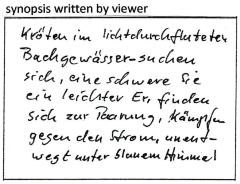 synopsis written by viewer
Kröten im lichtdurchfluteten
Bachgewässer – suchen
sich, eine schwere Sie
ein leichter Er, finden
sich zur Paarung, kämpfen
gegen den Strom, unent-
wegt unter blauem Himmel